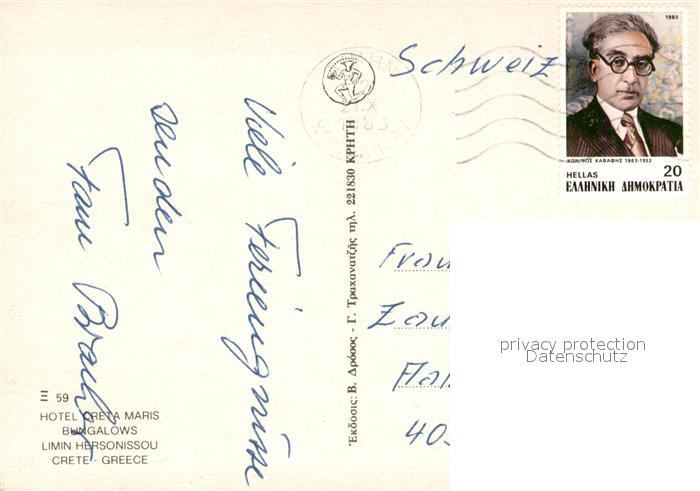 Viele Feriengrüsse
senden
Fam
Ξ 59
HOTEL CRETA MARIS
BUNGALOWS
LIMIN HERSONISSOU
CRETE - GREECE
Ἔκδοσις: Β. Δρόσος - Γ. Τραχανατζῆς τηλ. 221830 ΚΡΗΤΗ
Schweiz
1983
ΚΩΝ/ΝΟΣ ΚΑΒΑΦΗΣ 1863-1933
HELLAS 20
ΕΛΛΗΝΙΚΗ ΔΗΜΟΚΡΑΤΙΑ
privacy protection
Datenschutz